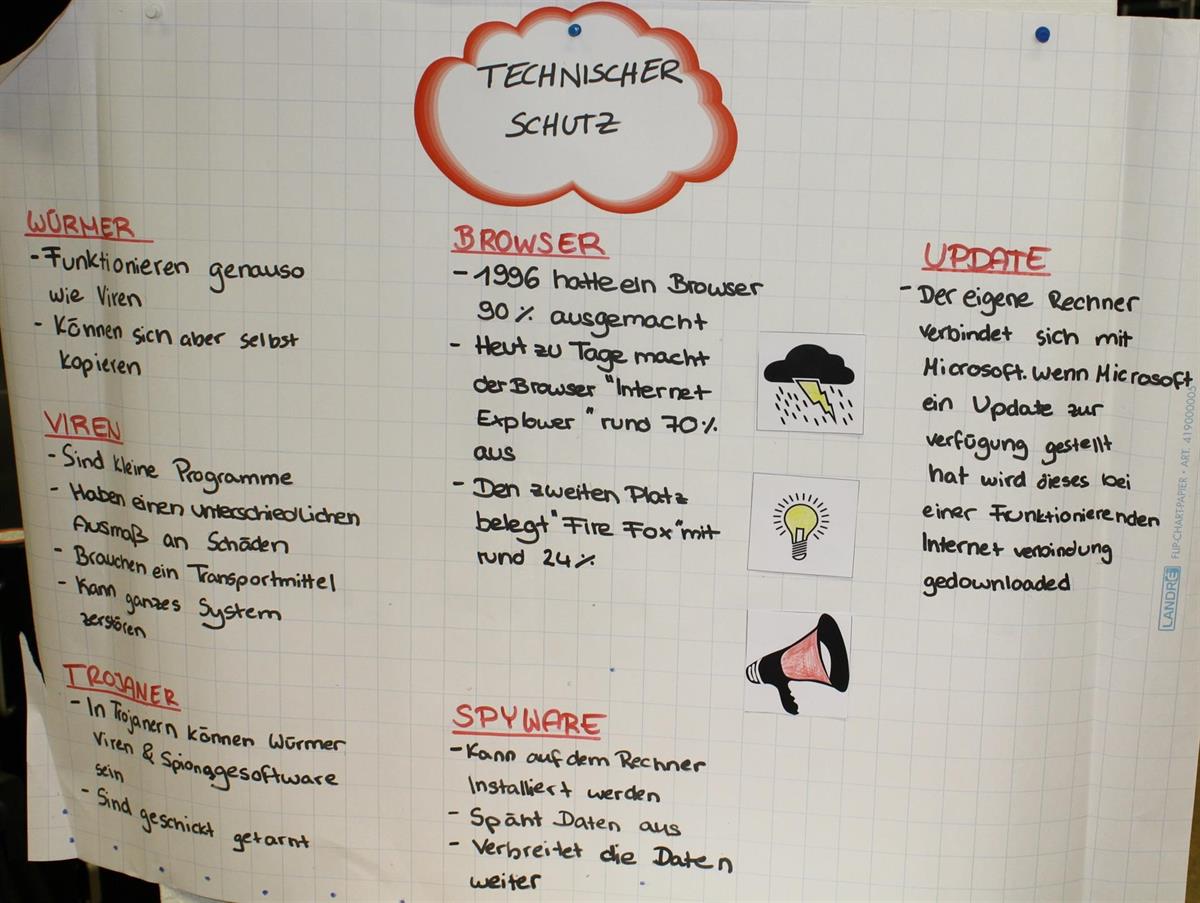 TECHNISCHER
SCHUTZ
WÜRMER
- Funktionieren genauso
wie Viren
- Können sich aber selbst
kopieren
VIREN
- Sind kleine Programme
- Haben einen unterschiedlichen
Ausmaß an Schäden
- Brauchen ein Transportmittel
- Kann ganzes System
zerstören
TROJANER
- In Trojanern können Würmer
Viren & Spionagesoftware
sein
- Sind geschickt getarnt
BROWSER
- 1996 hatte ein Browser
90% ausgemacht
- Heut zu Tage macht
der Browser "Internet
Explower" rund 70%
aus
- Den zweiten Platz
belegt "Fire Fox" mit
rund 24%
SPYWARE
- Kann auf dem Rechner
Installiert werden
- Späht Daten aus
- Verbreitet die Daten
weiter
UPDATE
- Der eigene Rechner
verbindet sich mit
Microsoft. wenn Microsoft
ein Update zur
verfügung gestellt
hat wird dieses bei
einer Funktionierenden
Internet verbindung
gedownloaded
LANDRÉ FLIP-CHART-PAPIER • ART. 419000005